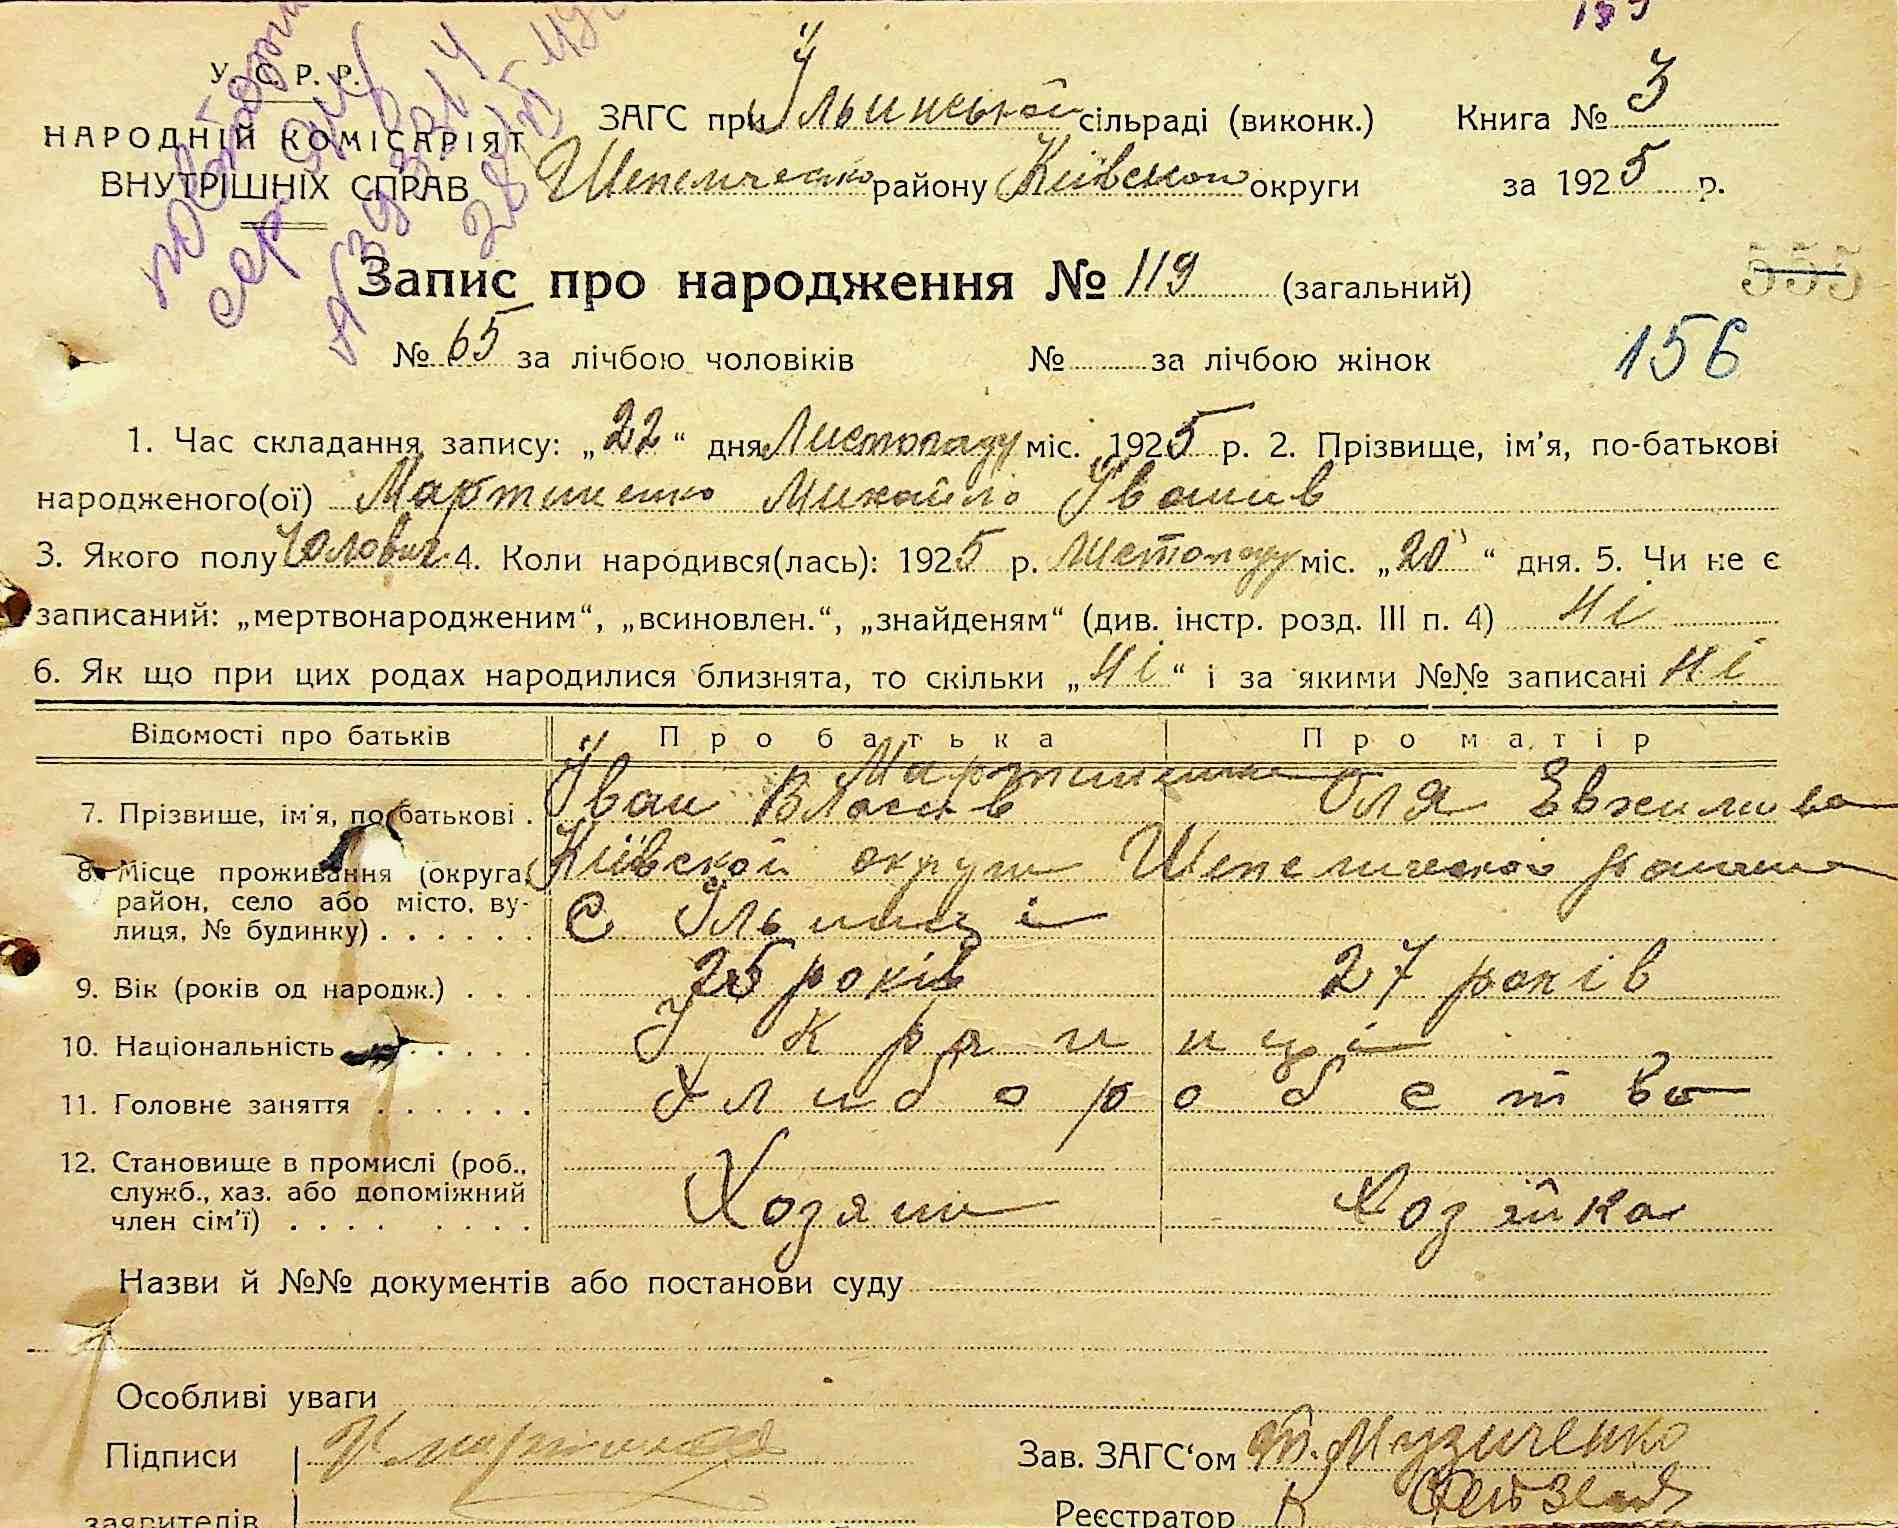 У. С. Р. Р.
НАРОДНІЙ КОМІСАРІЯТ
ВНУТРІШНІХ СПРАВ
ЗАГС при Ільинській сільраді (виконк.) Книга № 3
району Київської округи за 1925 р.
Запис про народження № 119 (загальний)
555
№ 65 за лічбою чоловіків № за лічбою жінок 156
1. Час складання запису: „22“ дня Листопаду міс. 1925 р. 2. Прізвище, ім'я, по-батькові
народженого(ої) Мартиненко Михайло Іванив
3. Якого полу Чоловіч 4. Коли народився(лась): 1925 р. Листопаду міс. „20“ дня. 5. Чи не є
записаний: „мертвонародженим“, „всиновлен.“, „знайденям“ (див. інстр. розд. III п. 4) Ні
6. Як що при цих родах народилися близнята, то скільки „Ні“ і за якими №№ записані Ні
Відомості про батьків Про батька Про матір
Мартиненко
7. Прізвище, ім'я, по батькові . Іван Власив Оля
8. Місце проживання (округа, Київской округи
район, село або місто, ву- С Ільинці
лиця, № будинку) . . . . . .
9. Вік (років од народж.) . . . 25 років 27 років
10. Національність . . . . . Украинці
11. Головне заняття . . . . . . Хлиборобство
12. Становище в промислі (роб.,
служб., хаз. або допоміжний Хозяин Хозяйка
член сім'ї) . . . . . . . .
Назви й №№ документів або постанови суду
Особливі уваги
Підписи Зав. ЗАГС'ом Музиченко
заявителів Реєстратор